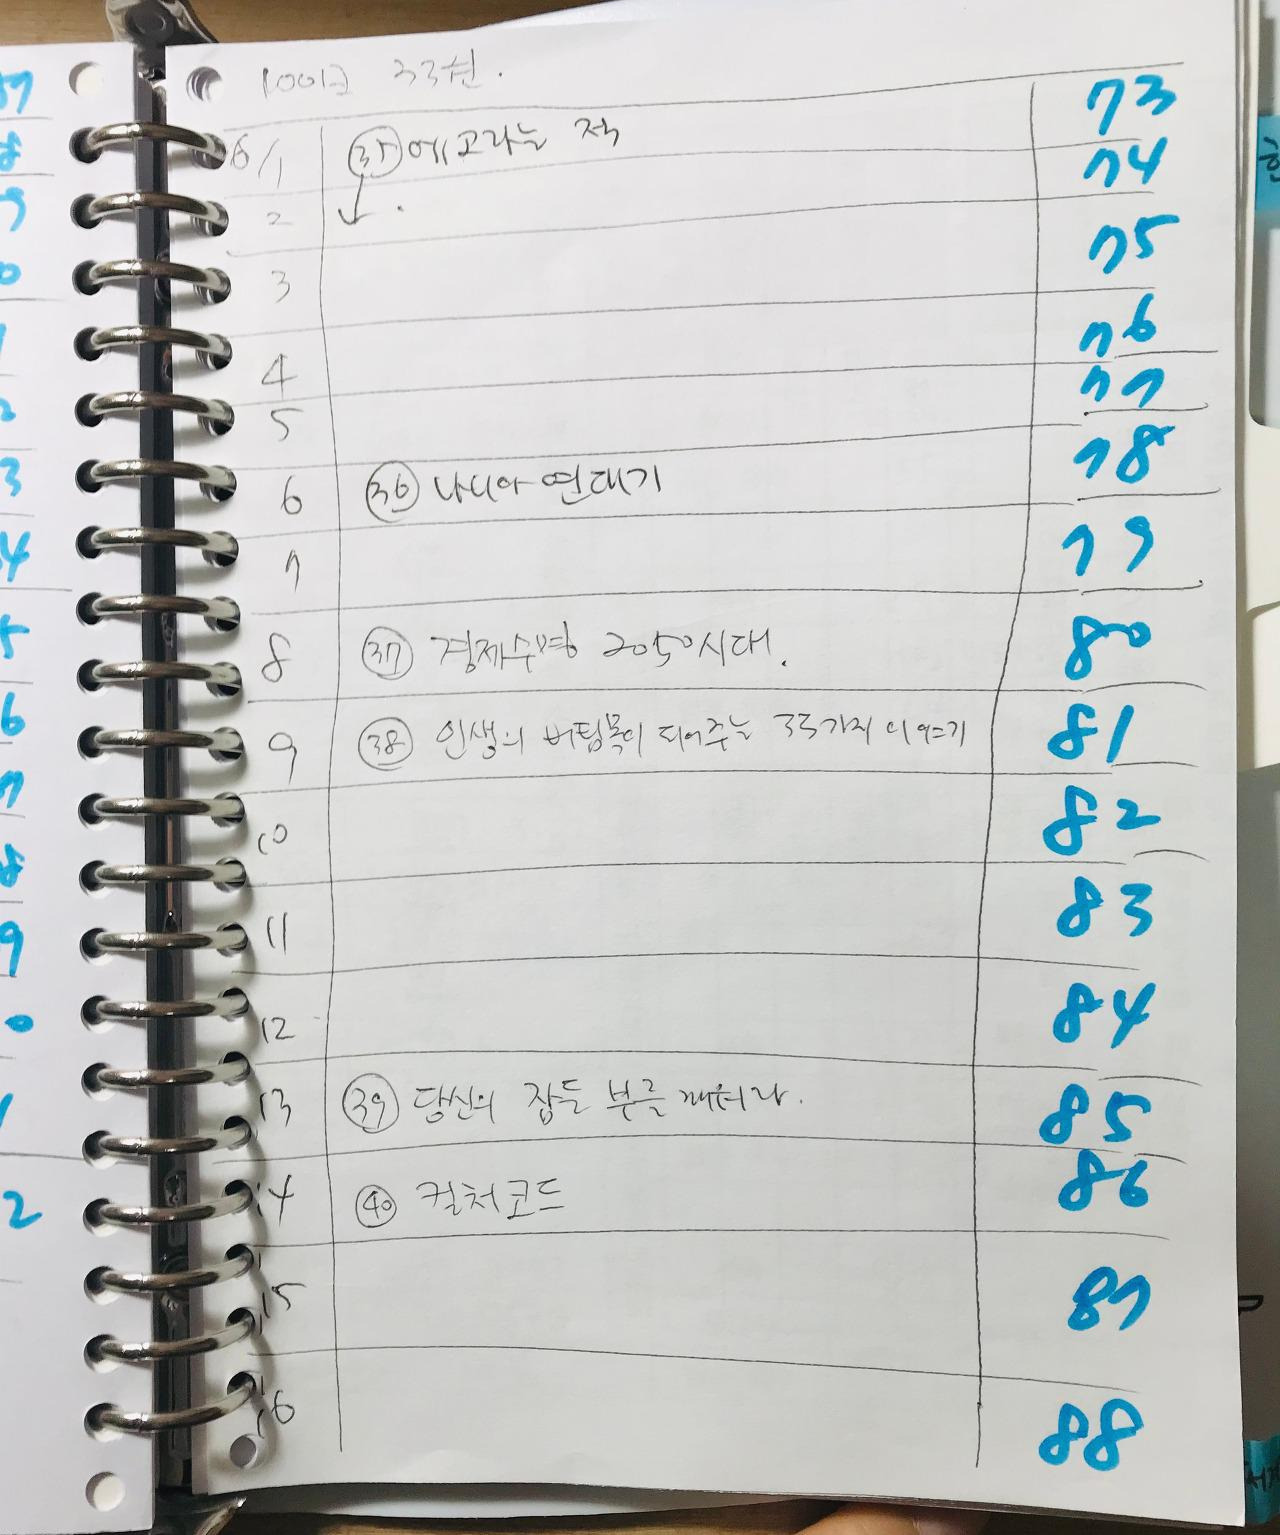 100일 33권.
6/1 ㉟ 에고라는 적 73
2 74
3 75
4 76
5 77
6 ㊱ 나니아 연대기 78
7 79
8 ㊲ 경제수명 2050시대. 80
9 ㊳ 인생의 버팀목이 되어주는 35가지 이야기 81
10 82
11 83
12 84
13 ㊴ 당신의 잠든 부를 깨워라. 85
14 ㊵ 컬처코드 86
15 87
16 88